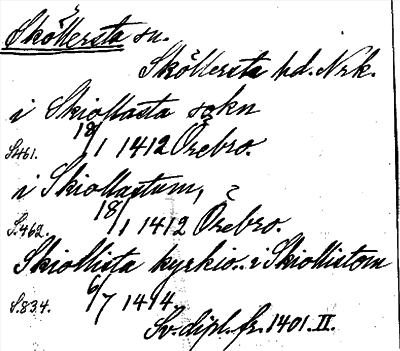 Sköllersta sn.
Sköllersta hd. Nrk.
i Skiollasta sokn
S.461. 18/1 1412 Örebro.
i Skiollastum,
S.462. 18/1 1412 Örebro.
Skiollista kyrkio.. i Skiollistom
S.834. 6/7 1414.
Sv. dipl. fr. 1401. II.